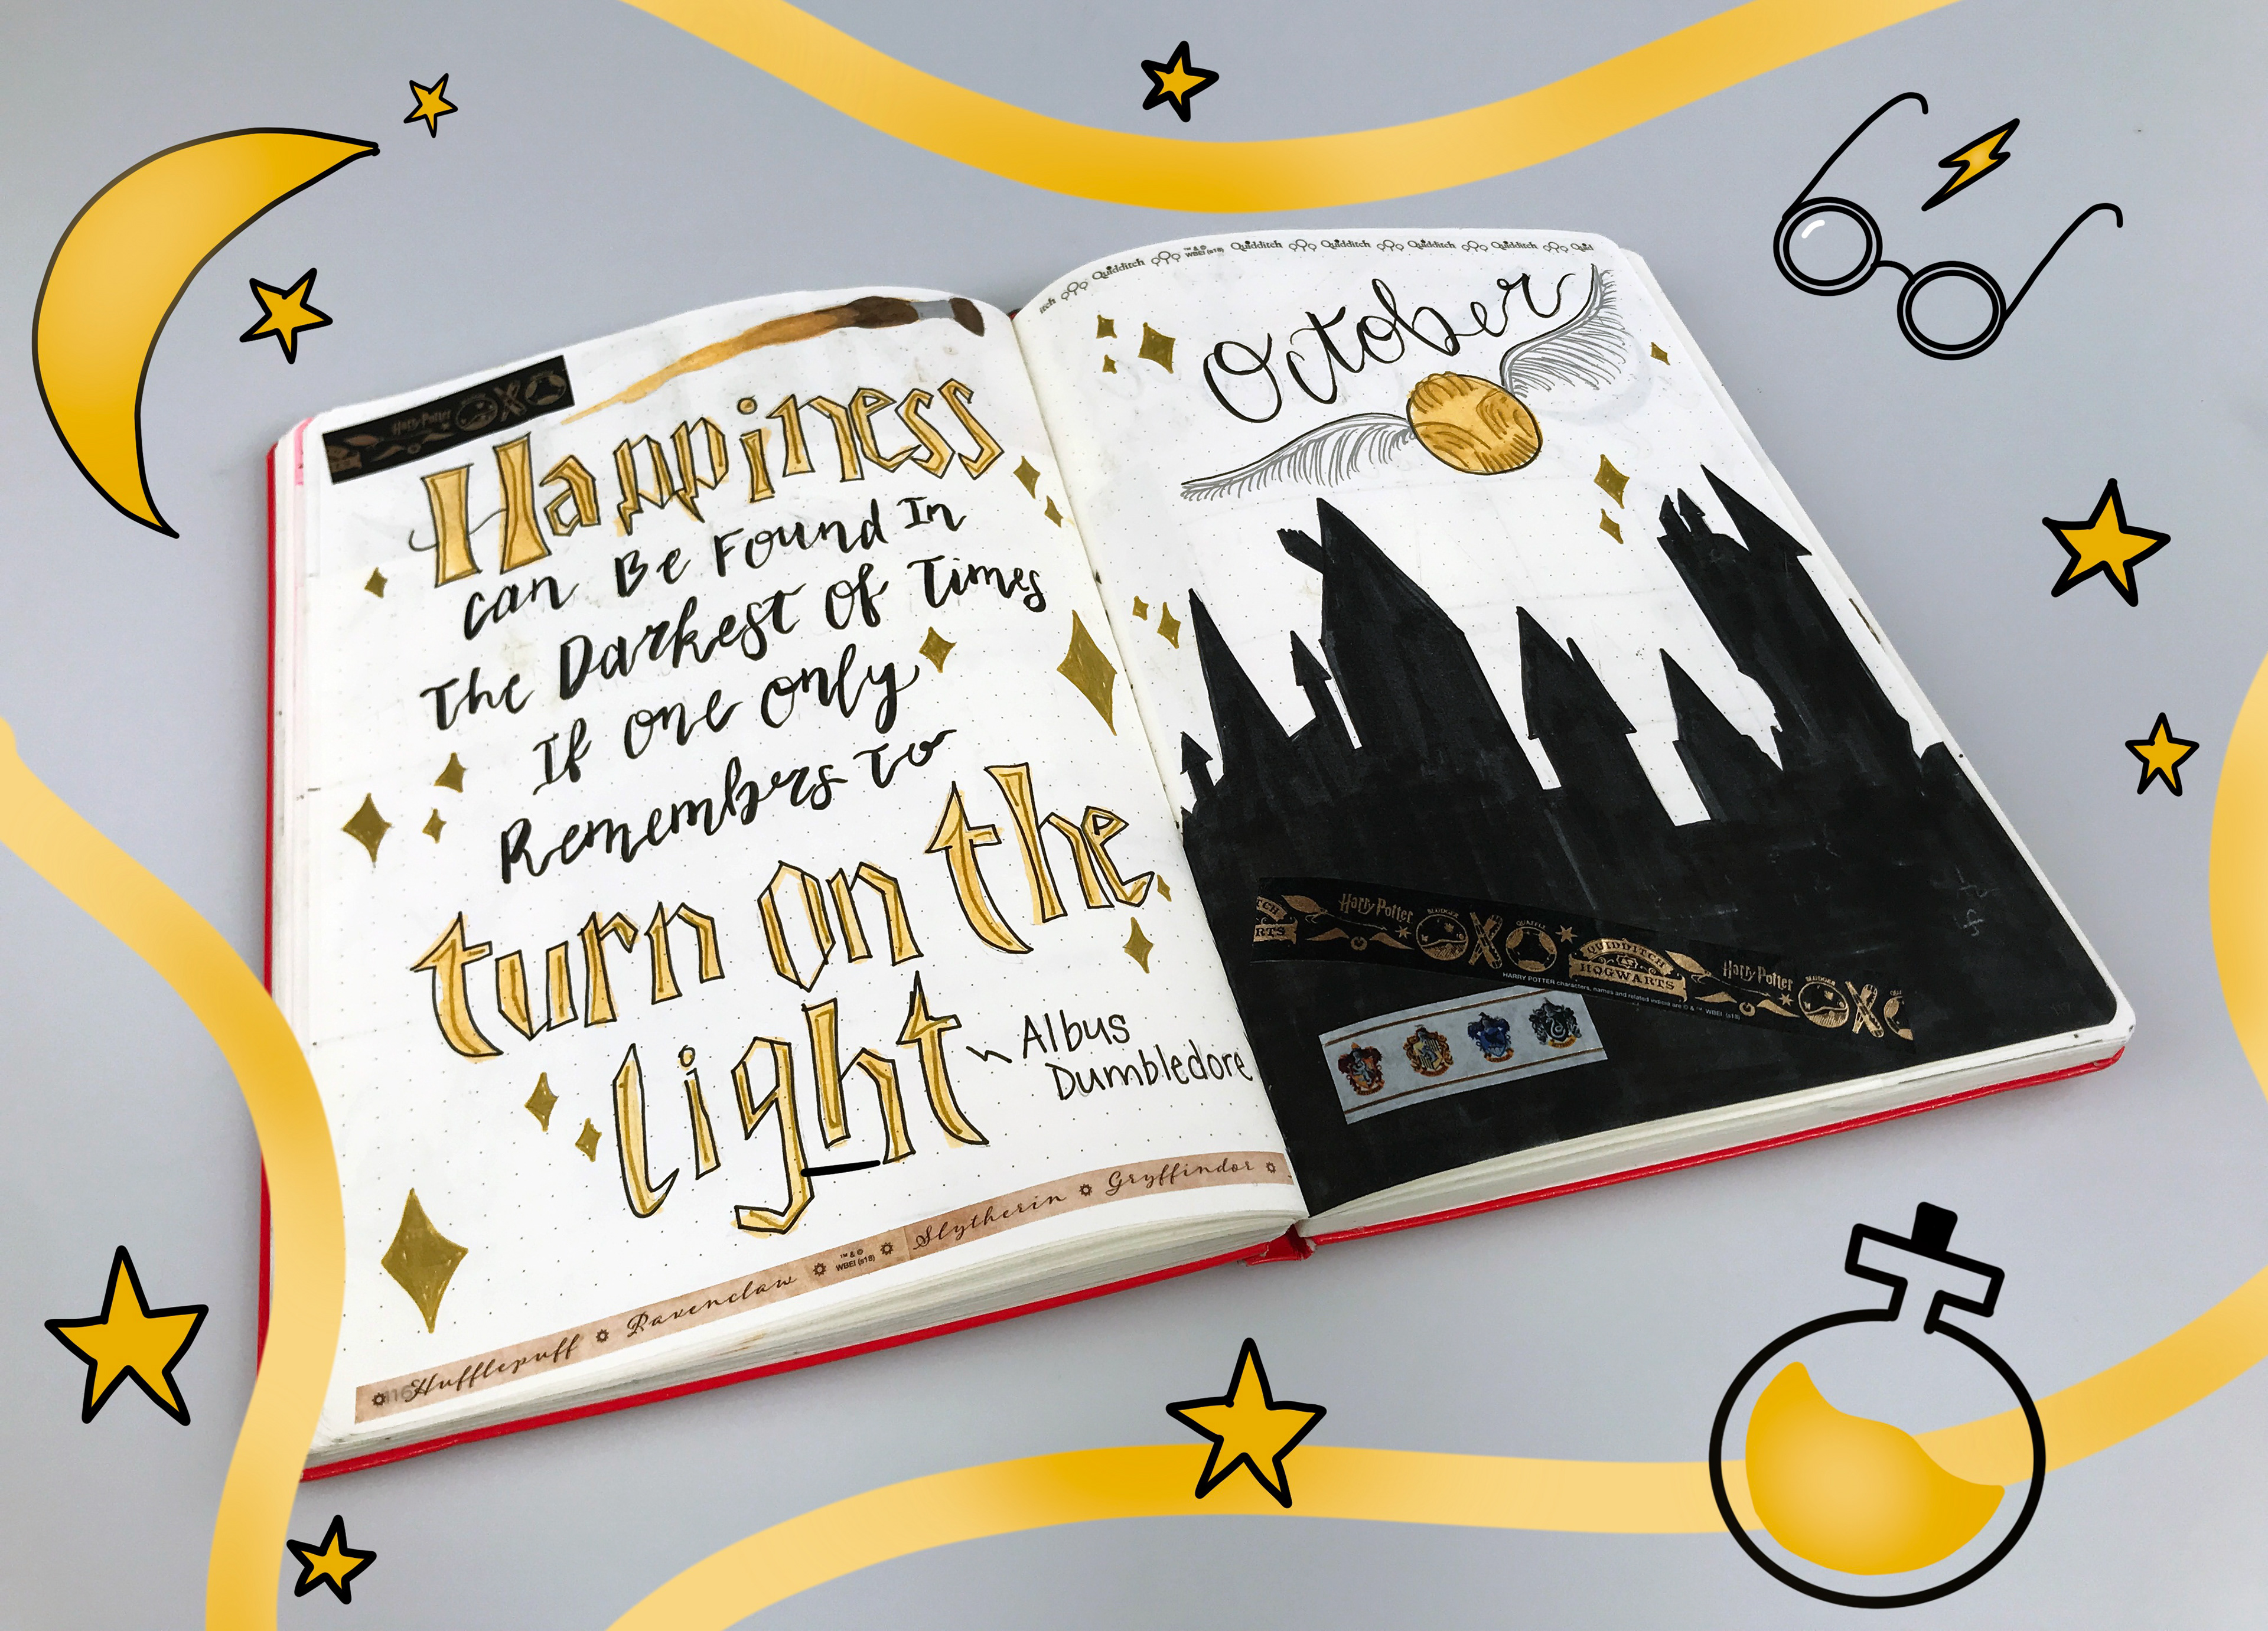 Harry Potter
Happiness
can Be Found In
The Darkest Of Times
If one only
Remembers To
turn on the
light
~ Albus
Dumbledore
116
Hufflepuff Ravenclaw ™ & © WBEI (s18) Slytherin Gryffindor
itch Quidditch ™ & © WBEI (s18) Quidditch Quidditch Quidditch Quidditch Quid
October
Harry Potter BLUDGER QUAFFLE QUIDDITCH HOGWARTS Harry Potter
HARRY POTTER characters, names and related indicia are © & ™ WBEI (s18)